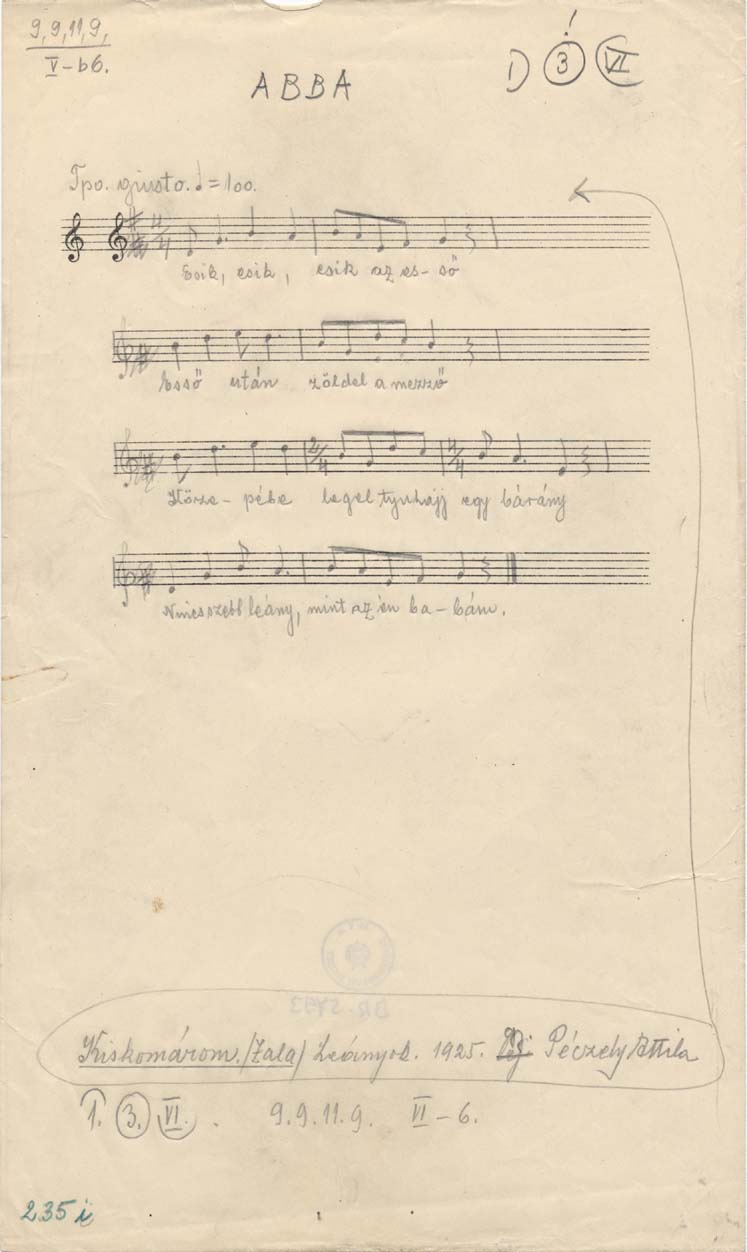 9,9,11,9,
V-b6.
ABBA
1) 3 VI
!
Tpo. giusto. ♩=100.
4/4
Esik, esik, esik az es-ső
Esső után zöldel a mezző
2/4 4/4
Köze-pébe legel tyuhájj egy bárány
Nincs szebb leány, mint az én ba-bám.
Kiskomárom. (Zala) Leányok. 1925. Péczely Attila
1. 3. VI. 9.9.11.9. VI-6.
235 i